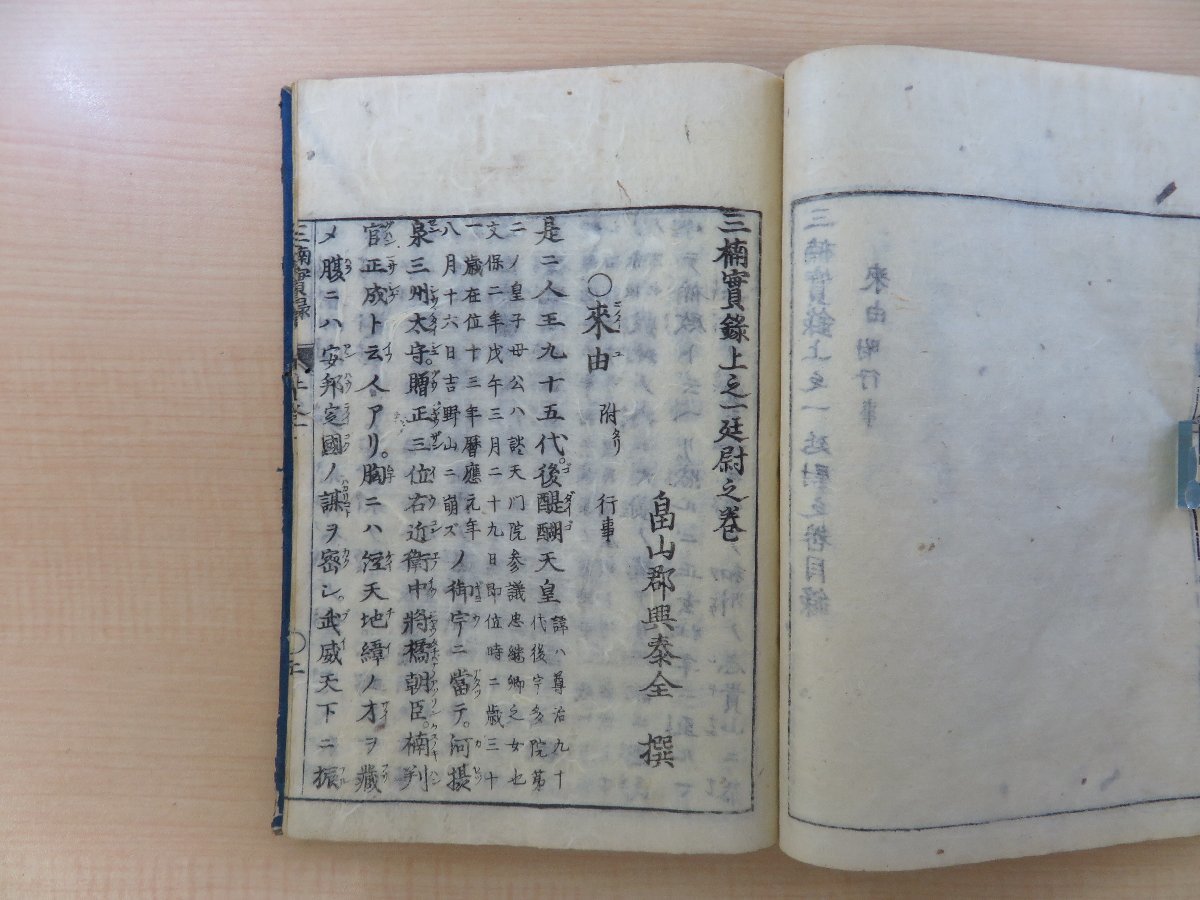 三楠實錄上之一廷尉之巻
畠山郡興泰全 撰
○來由 附タリ 行事
是ニ人王九十五代。後醍醐天皇 諱ハ尊治九十
代後宇多院第
二ノ皇子母公ハ談天門院参議忠継卿之女也
文保二年戊午三月二十九日即位時ニ歳三十
一歳在位十三年暦應元年
八月十六日吉野山ニ萠ズ ノ御宇ニ當テ。河摂
泉三州太守。贈正三位右近衛中將橘朝臣。楠判
官正成ト云人アリ。胸ニハ經天地緯ノ才ヲ藏
メ腹ニハ安邦定國ノ謀ヲ密シ。武威天下ニ振
三楠實録
上巻一
三楠實錄上之一廷尉之巻目録
來由附行事